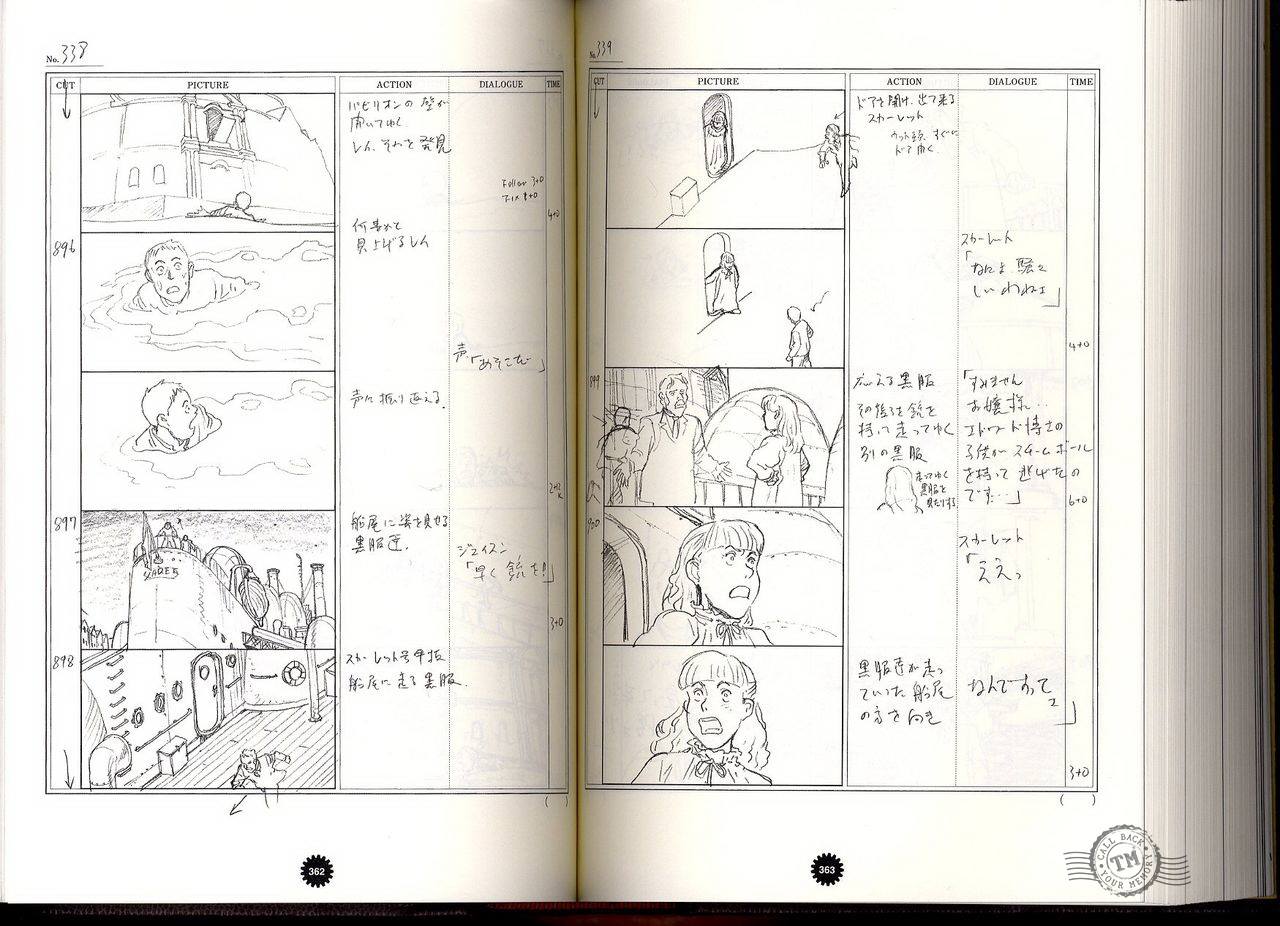 No. 338
CUT
PICTURE
ACTION
DIALOGUE
TIME
パビリオンの壁が
開いてゆく
レイ、それを発見
Follow 3+0
Fix 1+0
4+0
896
何事かと
見上げるレイ
声「あそこだ」
声に振り返える。
897
船尾に姿を見せる
黒服達.
ジェイスン
「早く銃を!」
3+0
898
スカーレット号甲板
船尾に走る黒服.
362
No. 339
CUT
PICTURE
ACTION
DIALOGUE
TIME
ドアを開け、出て来る
スカーレット
スカーレット
「なによ騒々
しいわねェ」
4+0
899
応える黒服
その後ろを銃を
持って走ってゆく
別の黒服
走ってゆく
黒服を
見たりする
「すみません
お嬢様…
エドワード博士の
子供がスチームボール
を持って逃げたの
です…」
6+0
900
スカーレット
「ええっ
黒服達が走っ
ていた船尾
の方を向き
なんですって」
3+0
363
CALL BACK
TM
YOUR MEMORY